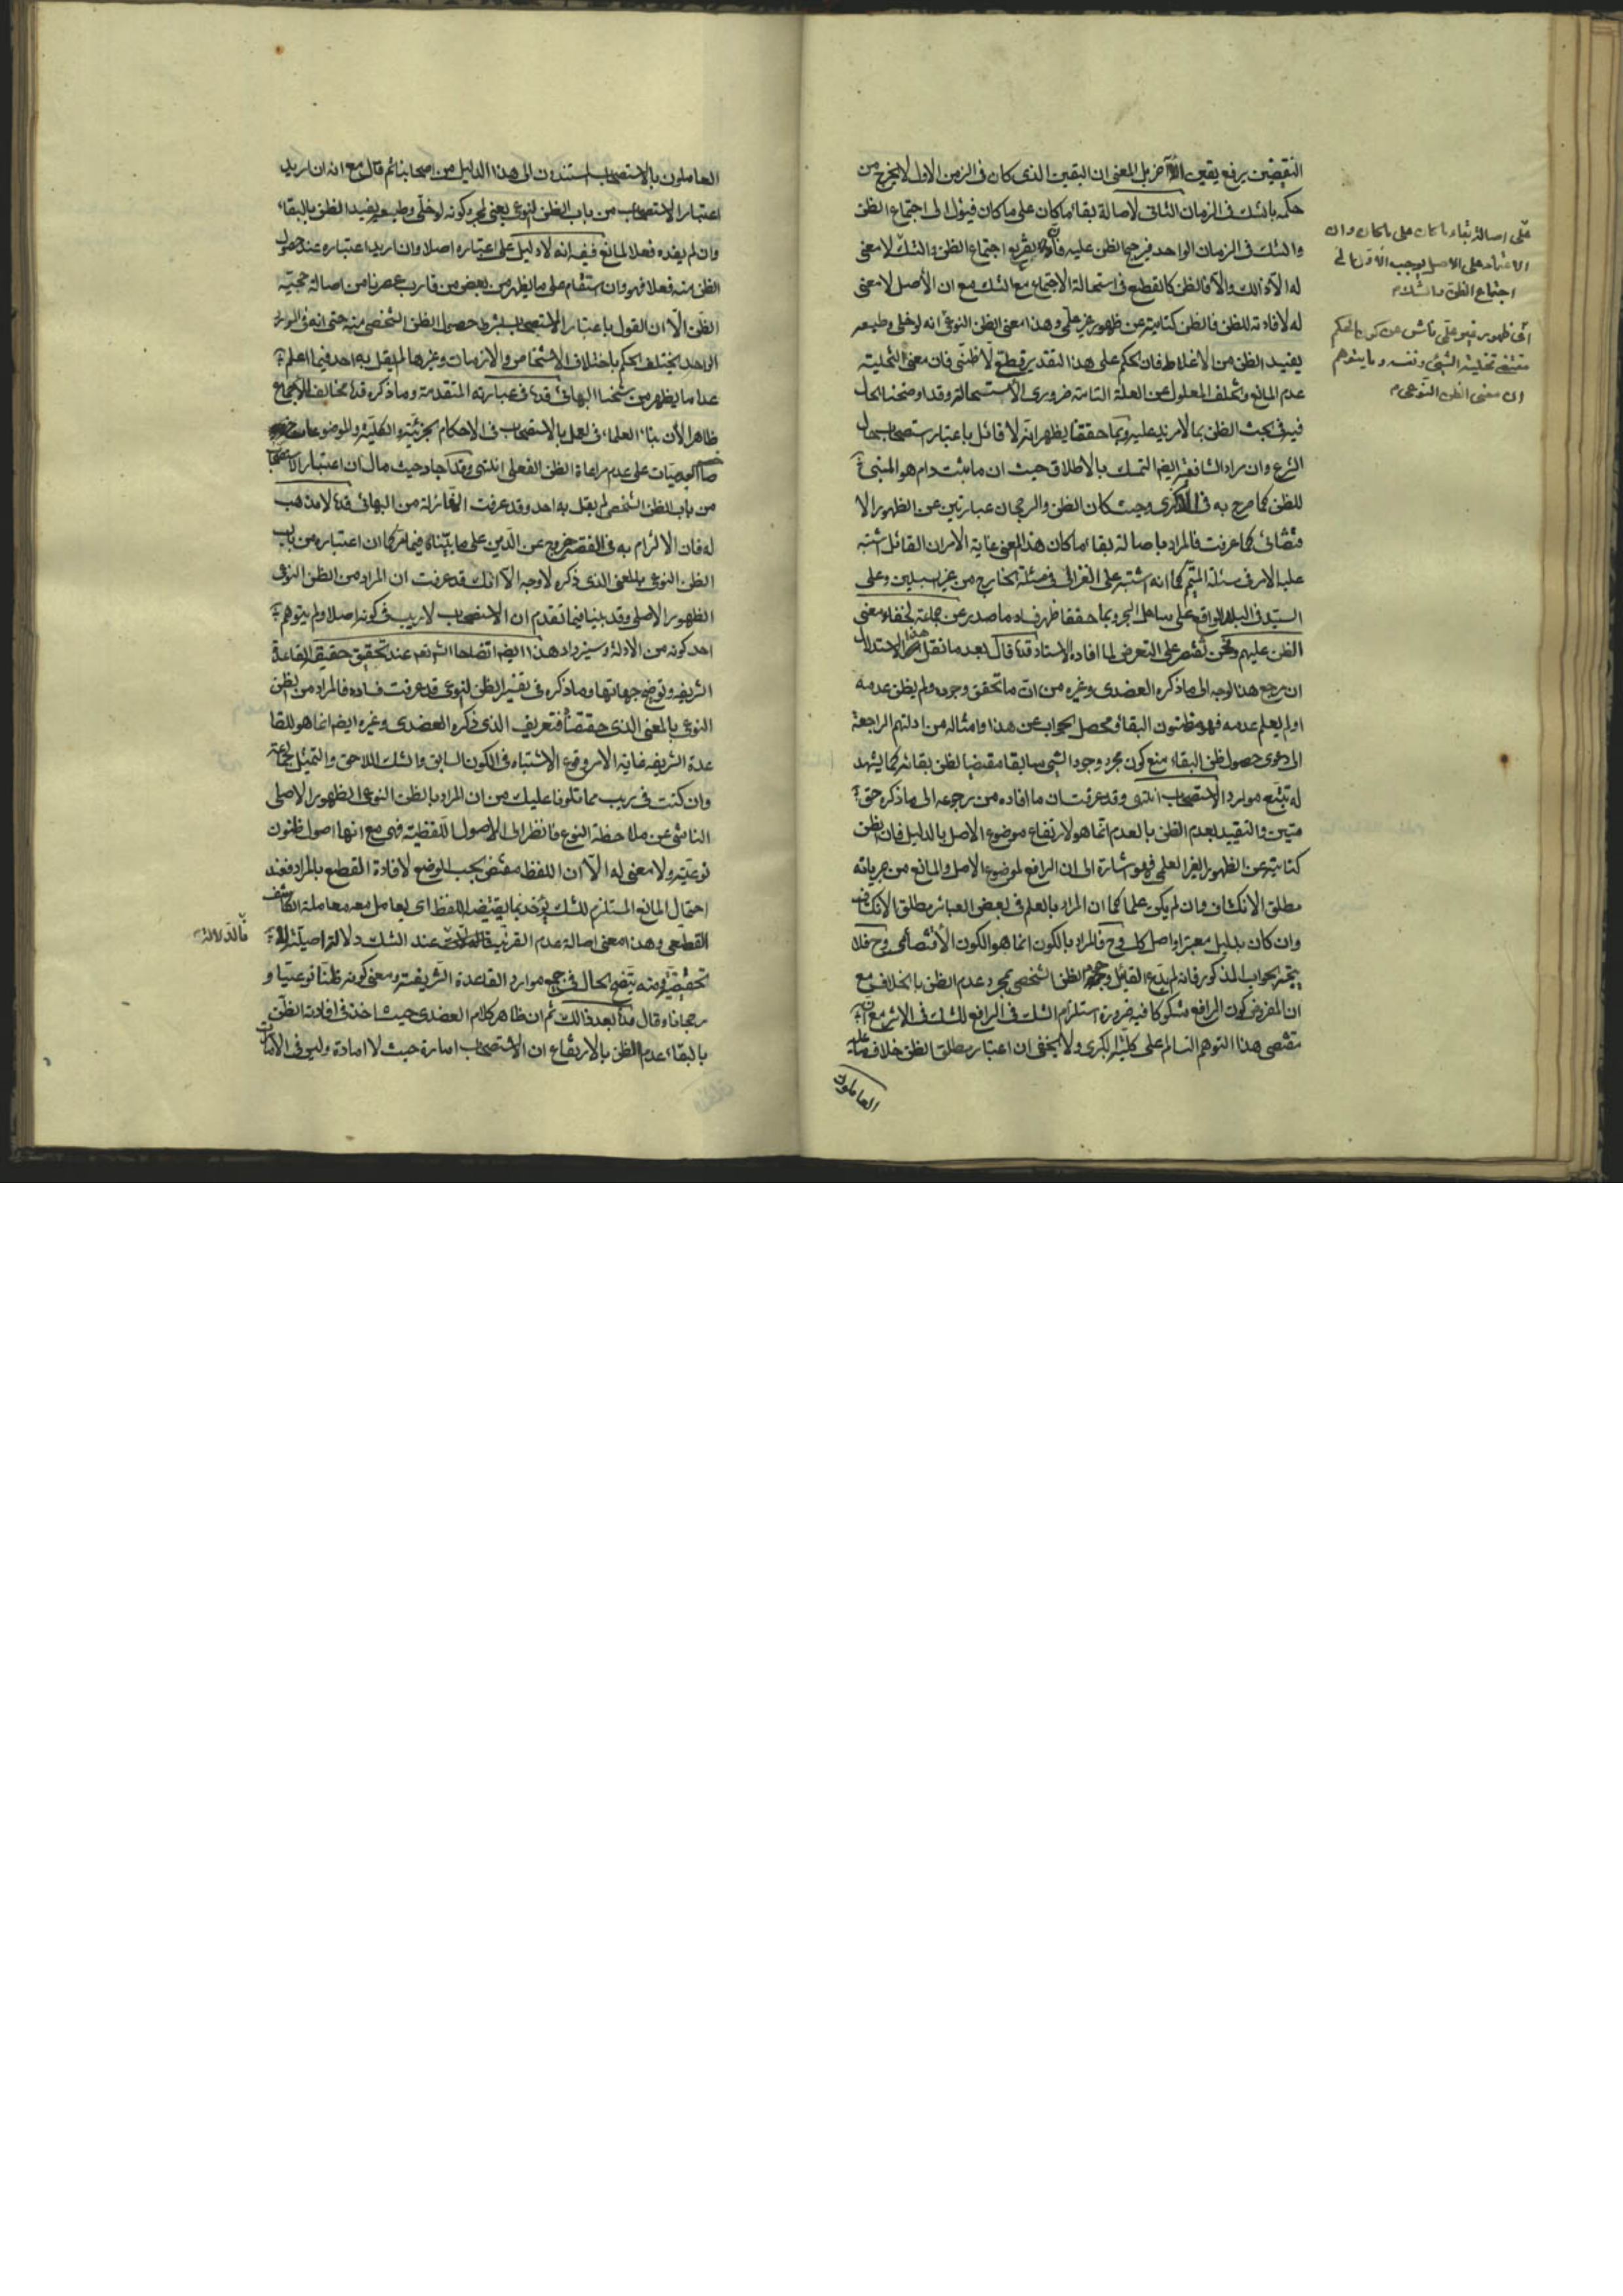 النقيضين يرفع يقين الآخر بل المعنى ان اليقين الذى كان فى الزمن الاول لا يخرج من
حكمه بالشك فى الزمان الثانى لاصالة بقاء ما كان على ما كان فيؤل الى اجتماع الظن
والشك فى الزمان الواحد فيرجح الظن عليه اجتماع الظن والشك لا معنى
له الا ذالك والا فالظن كالقطع فى استحالة الاجتماع مع الشك مع ان الأصل لا معنى
له لافادته للظن فالظن كناية عن ظهور غير علمى وهذا معنى الظن النوعى انه لو خلى وطبعه
يفيد الظن من الاغلاط فان الحكم على هذا التقدير قطعى لا ظنى فان معنى التخلية
عدم المانع وتخلف المعلول عن العلة التامة ضرورى الاستحالة وقد اوضحنا الحال
فيه فى بحث الظن بما لا مزيد عليه وبما حققنا يظهر انه لا قائل باعتبار استصحاب حال
الشرع وان مراد الشافعى ايضا التمسك بالاطلاق حيث ان ما يثبت دام هو المبنى
للظن كما صرح به فى الذكرى وحيث كان الظن والرجحان عبارتين عن الظهور الا
قتضائى كما عرفت فالمراد باصالة بقاء ما كان هذا المعنى غاية الامر ان القائل اشتبه
عليه الامر فى مسئلة المتيمم كما انه اشتبه على الغزالى فى مسئلة الخارج من غير السبيلين وعلى
السيد فى البلد الواقع على ساحل البحر وبما حققنا ظهر فساد ما صدر عن جماعة لخفاء معنى
الظن عليهم ونحن نقتصر على التعرض لما افاده الاستاد قده قال بعد ما نقل هذا الاستدلال
ان مرجع هذا الوجه الى ما ذكره العضدى وغيره من ان ما تحقق وجوده ولم يظن عدمه
او لم يعلم عدمه فهو مظنون البقاء ومحصل الجواب عن هذا وامثاله من ادلتهم الراجعة
الى دعوى حصول ظن البقاء منع كون مجرد وجود الشىء سابقا مقتضيا لظن بقائه كما يشهد
له تتبع موارد الاستصحاب انتهى وقد عرفت ان ما افاده من رجوعه الى ما ذكره حق
متين والتقييد بعدم الظن بالعدم انما هو لارتفاع موضوع الاصل بالدليل فان الظن
كناية عن الظهور الغير العلمى فهو اشارة الى ان الرافع لموضوع الاصل والمانع من جريانه
مطلق الانكشاف وان لم يكن علما كما ان المراد بالعلم فى بعض العبائر مطلق الانكشاف
وان كان بدليل معتبر او اصل كلى وح فالمراد بالكون انما هو الكون الاقتضائى وح فلا
يتجه الجواب المذكور فانه لم يدع القائل الظن الشخصى بمجرد عدم الظن بالخلاف مع
ان المفروض كون الرافع مشكوكا فيه ضرورة استلزام الشك فى الرافع للشك فى الاثر مع ان
مقتضى هذا التوهم التسالم على كلية الكبرى ولا يخفى ان اعتبار مطلق الظن خلاف ما عليه
العاملون
على اصالة بقاء ما كان على ما كان وان
الاعتماد على الاصل يوجب الاول الى
اجتماع الظن والشك م
اى ظهور غير علمى ناش عن كون الحكم
مقتضى تخلية الشئ ونفسه وما يتوهم
ان معنى الظن النوعى م
العاملون بالاستصحاب استندون الى هذا الدليل من اصحابنا ثم قال مع انه ان اريد
اعتبار الاستصحاب من باب الظن النوعى يعنى لمجرد كونه لو خلى وطبعه يفيد الظن بالبقاء
وان لم يفده فعلا لمانع ففيه انه لا دليل على اعتباره اصلا وان اريد اعتباره عند حصول
الظن منه فعلا فهو وان استقام على ما يظهر من بعض من قارب عصرنا من اصالة حجية
الظن الا ان القول باعتبار الاستصحاب بشرط حصول الظن الشخصى منه حتى انه فى المورد
الواحد يختلف الحكم باختلاف الاشخاص والازمان وغيرها لم يقل به احد فيما اعلم
عدا ما يظهر من شيخنا البهائى قده فى عبارته المتقدمة وما ذكره قده مخالف للاجماع
ظاهرا لأن بناء العلماء فى العمل بالاستصحاب فى الاحكام الجزئية والكلية والموضوعات
على عدم مراعاة الظن الفعلى انتهى وقد اجاد حيث قال ان اعتبار الاستصحاب
من باب الظن الشخصى لم يقل به احد وقد عرفت انها زلة من البهائى قده لا مذهب
له فان الالتزام به فى الفقه خروج عن الدين على ما بيناه فيما مر كما ان اعتباره من باب
الظن النوعى بالمعنى الذى ذكره لا وجه الا انك قد عرفت ان المراد من الظن النوعى
الظهور الاصلى وقد بينا فيما تقدم ان الاستصحاب لا ريب فى كونه اصلا ولم يتوهم
احد كونه من الادلة وسيزداد هذا ايضا اتضاحا انشاء الله تعم عند تحقيق حقيقة القاعدة
الشريفة وتوضيح جهاتها وما ذكره فى تفسير الظن النوعى قد عرفت فساده فالمراد من الظن
النوعى بالمعنى الذى حققناه فتعريف الذى ذكره العضدى وغيره ايضا انما هو للقا
عدة الشريفة غاية الامر وقوع الاشتباه فى الكون السابق والشك اللاحق والتمثيل
وان كنت فى ريب مما تلونا عليك من ان المراد بالظن النوعى الظهور الاصلى
الناشى عن ملاحظة النوع فانظر الى الاصول اللفظية فهى مع انها اصول ظنون
نوعية ولا معنى له الا ان اللفظ مقتض بحسب الوضع لافادة القطع بالمراد فعند
احتمال المانع المستلزم للشك يؤخذ بما يقتضيه اللفظ اى يعامل معه معاملة الكاشف
القطعى وهذا معنى اصالة عدم القرينة عند الشك دلالة اصيلية لا
تحقيقية ومنه يتضح الحال فى جميع موارد القاعدة الشريفة ومعنى كونه ظنا نوعيا و
رجحانا وقال قده بعد ذالك ثم ان ظاهر كلام العضدى حيث اخذ فى افادته الظن
بالبقاء عدم الظن بالارتفاع ان الاستصحاب امارة حيث لا امارة وليس فى الامارات
فالدلالة